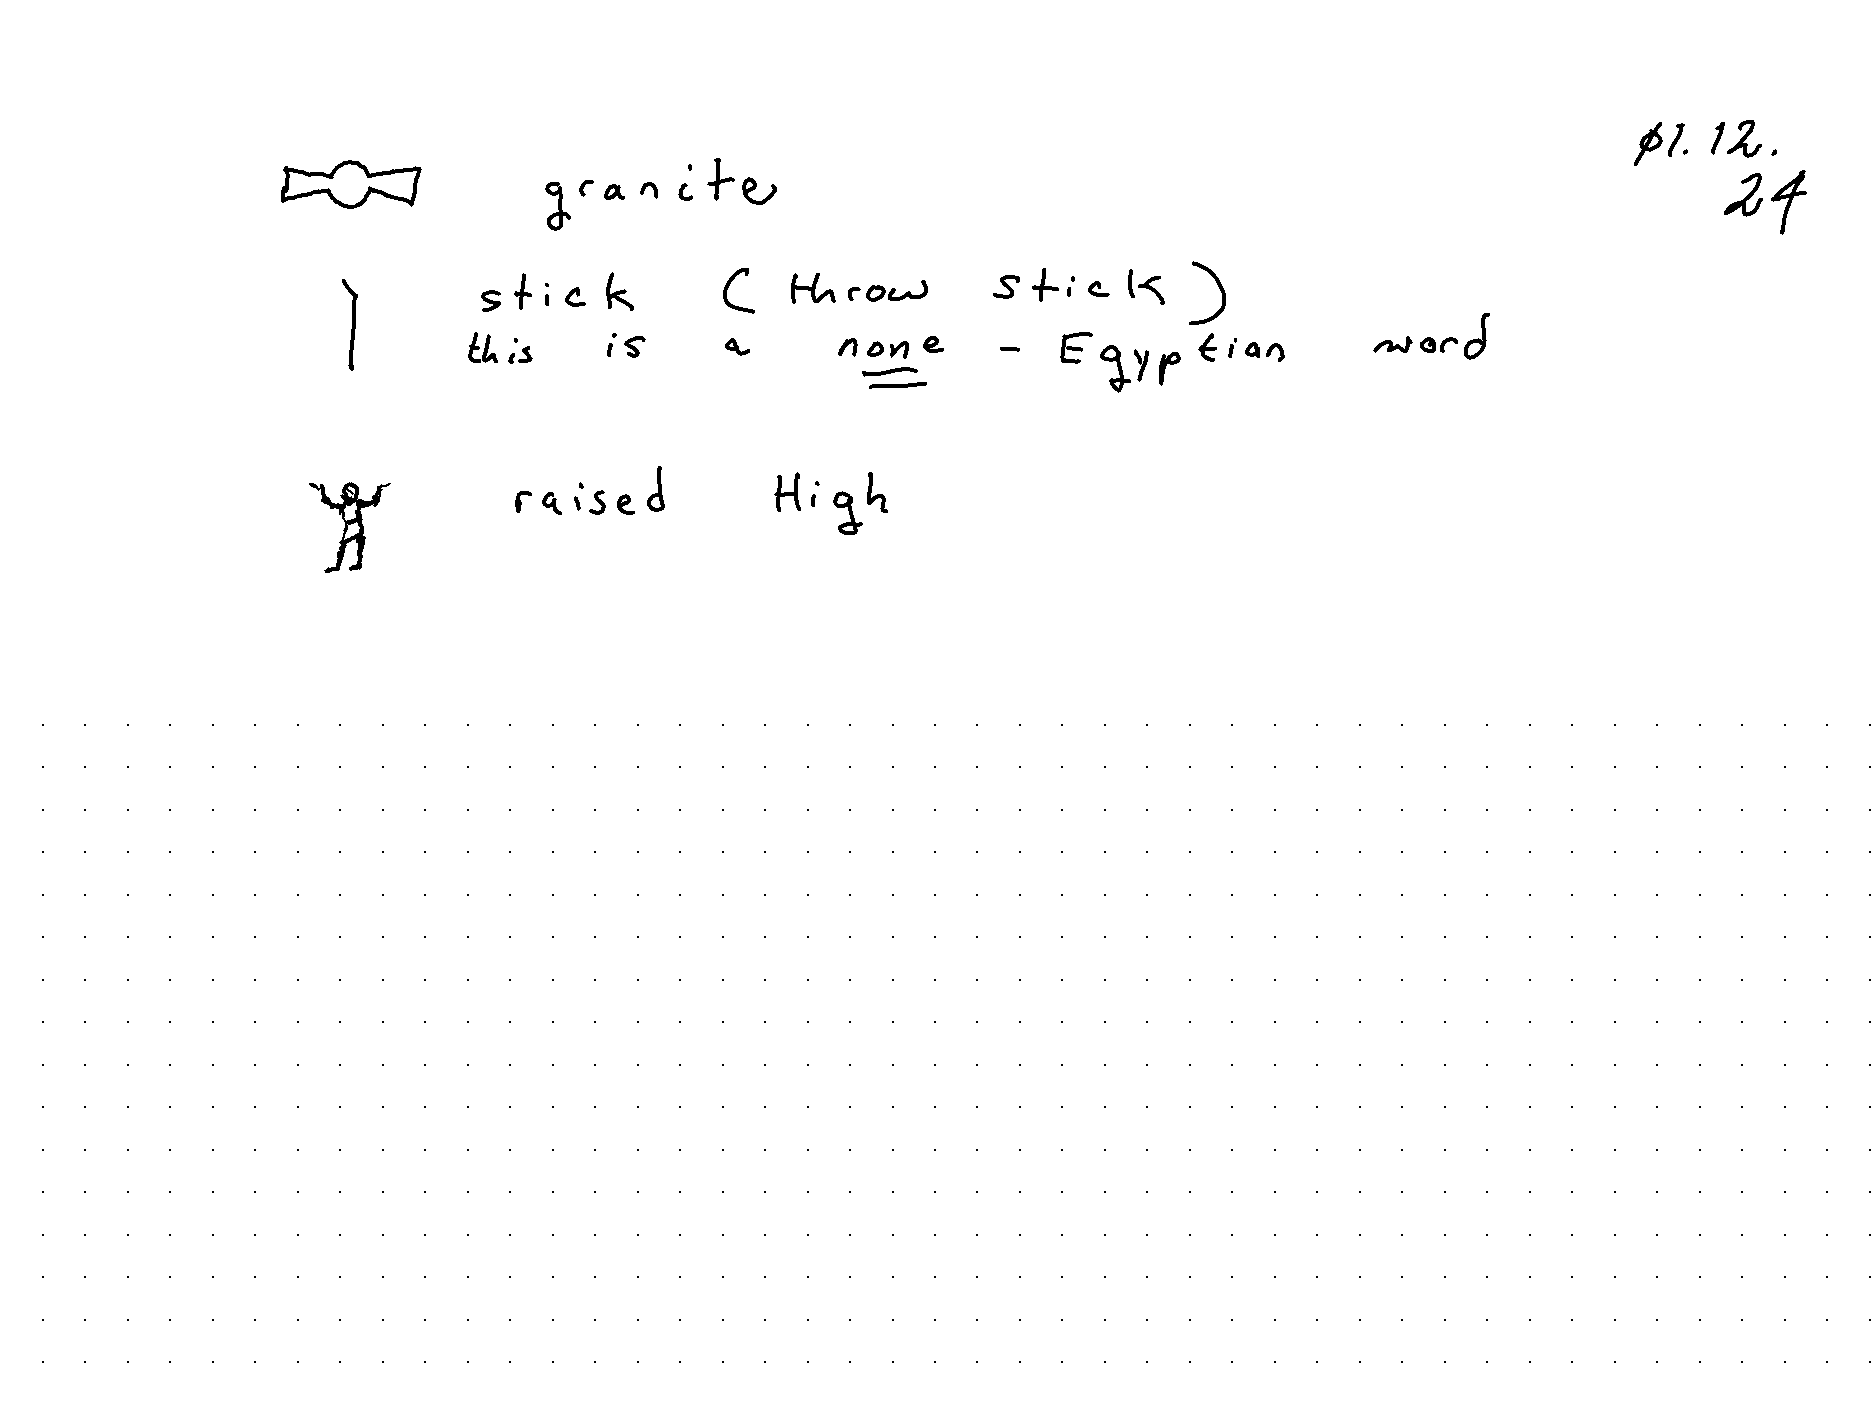 01.12.
24
granite
stick (throw stick)
this is a none - Egyptian word
raised High